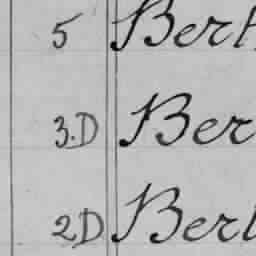 5 Bert
3.D Ber
2D Bert